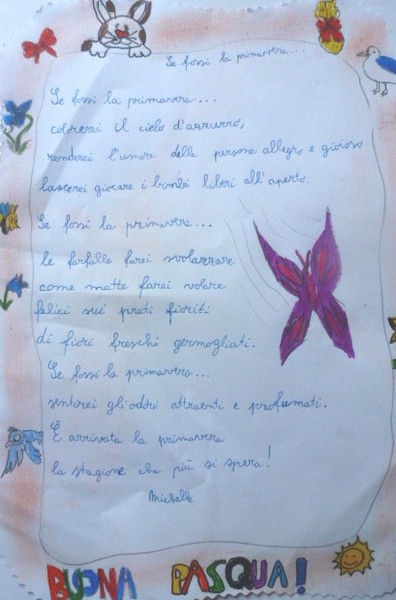 Se fossi la primavera...
Se fossi la primavera...
colorerei il cielo d'azzurro,
renderei l'umore delle persone allegro e gioioso
lascerei giocare i bimbi liberi all'aperto.
Se fossi la primavera...
le farfalle farei svolazzare
come matte farei volare
felici sui prati fioriti
di fiori freschi germogliati.
Se fossi la primavera...
sentirei gli odori attraenti e profumati.
È arrivata la primavera
la stagione che più si spera!
Michelle
BUONA PASQUA!